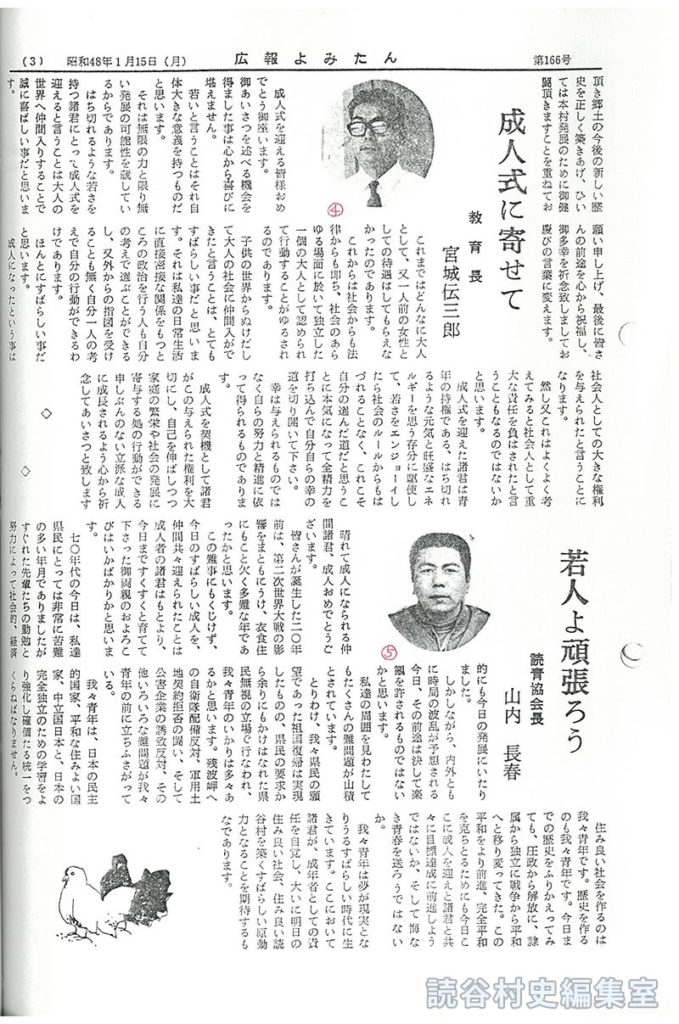 (3) 昭和48年1月15日(月) 広報よみたん 第166号
頂き郷土の今後の新しい歴
史を正しく築きあげ、ひい
ては本村発展のために御健
闘頂きますことを重ねてお
願い申し上げ、最後に皆さ
んの前途を心から祝福し、
御多幸を祈念致しましてお
慶びの言葉に変えます。
成人式に寄せて
教育長 宮城伝三郎
④
成人式を迎える皆様おめ
でとう御座います。
御あいさつを述べる機会を
得ました事は心から喜びに
堪えません。
若いと言うことはそれ自
体大きな意義を持つものだ
と思います。
それは無限の力と限り無
い発展の可能性を蔵してい
るからであります。
はち切れるような若さを
持つ諸君にとって成人式を
迎えると言うことは大人の
世界へ仲間入りすることで
誠に喜ばしい事だと思いま
す。
これまではどんなに大人
として、又一人前の女性と
しての待遇はしてもらえな
かったのであります。
これからは社会からも法
律からも即ち、社会のあら
ゆる場面に於いて独立した
一個の大人として認められ
て行動することがゆるされ
るのであります。
子供の世界からぬけだし
て大人の社会に仲間入がで
きたと言うことは、とても
すばらしい事だと思いま
す。それは私達の日常生活
に直接密接な関係をもつと
ころの政治を行う人も自分
の考えで選ぶことができる
し、又外からの指図を受け
ることも無く自分一人の考
えで自分の行動ができるわ
けであります。
ほんとにすばらしい事だ
と思います。
成人になったという事は
社会人としての大きな権利
を与えられたと言うことに
なります。
然し又これはよくよく考
えてみると社会人として重
大な責任を負はされたと言
うこともなるのではないか
と思います。
成人式を迎えた諸君は青
年の特権である、はち切れ
るような元気と旺盛なエネ
ルギーを思う存分に駆使し
て、若さをエンジョーイし
たら社会のルールからもは
づれることなく、これこそ
自分の選んだ道だと思うこ
とに本気になって全精力を
打ち込んで自分自らの幸の
道を切り開いて下さい。
幸は与えられるものでは
なく自らの努力と精進に依
って得られるものでありま
す。
成人式を契機として諸君
がこの与えられた権利を大
切にし、自己を伸ばしつつ
家庭の繁栄や社会の発展に
寄与する処の行動ができる
申しぶんのない立派な成人
に成長されるよう心から祈
念してあいさつと致します
◇ ◇
若人よ頑張ろう
読青協会長 山内長春
⑤
晴れて成人になられる仲
間諸君、成人おめでとうご
ざいます。
皆さんが誕生した二〇年
前は、第二次世界大戦の影
響をまともにうけ、衣食住
にもこと欠く多難な年であ
ったかと思います。
この難事にもくじけず、
今日のすばらしい成人を、
仲間共々迎えられたことは
成人者の諸君はもとより、
今日まですくすくと育てて
下さった御両親のおよろこ
びはいかばかりかと思いま
す。
七〇年代の今日は、私達
県民にとっては非常に苦難
の多い年月でありましたが
すぐれた先輩たちの勤勉と
努力によって社会的、経済
的にも今日の発展にいたり
ました。
しかしながら、内外とも
に時局の波乱が予想される
今日、その前途は決して楽
観を許されるものではない
かと思います。
私達の周囲を見わたして
もたくさんの難問題が山積
とされています。
とりわけ、我々県民の願
望であった祖国復帰は実現
したものの、県民の要求か
ら余りにもかけはなれた県
民無視の立場で行なわれ、
我々青年のいかりは多々あ
るかと思います。残波岬へ
の自衛隊配備反対、軍用土
地契約拒否の闘い、そして
公害企業の誘致反対、その
他いろいろな難問題が我々
青年の前に立ちふさがって
いる。
我々青年は、日本の民主
的国家、平和な住みよい国
家、中立国日本と、日本の
完全独立のための学習をよ
り強化し確固たる統一をつ
くらねばなりません。
住み良い社会を作るのは
我々青年です。歴史を作る
のも我々青年です。今日ま
での歴史をふりかえってみ
ても、圧政から解放に、隷
属から独立に戦争から平和
へと移り変ってきた。この
平和をより前進、完全平和
を克ちとるためにも今日こ
こに成人を迎えた諸君と共
々に目標達成に前進しよう
ではないか、そして悔な
き青春を送ろうではない
か。
我々青年は夢が現実とな
りうるすばらしい時代に生
きています。ここにおいて
諸君が、成年者としての責
任を自覚し、大いに明日の
住み良い社会、住み良い読
谷村を築くすばらしい原動
力となることを期待するも
なであります。
読谷村史編集室